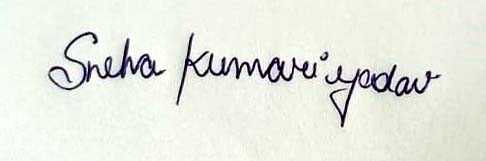 Sneha Kumari yadav